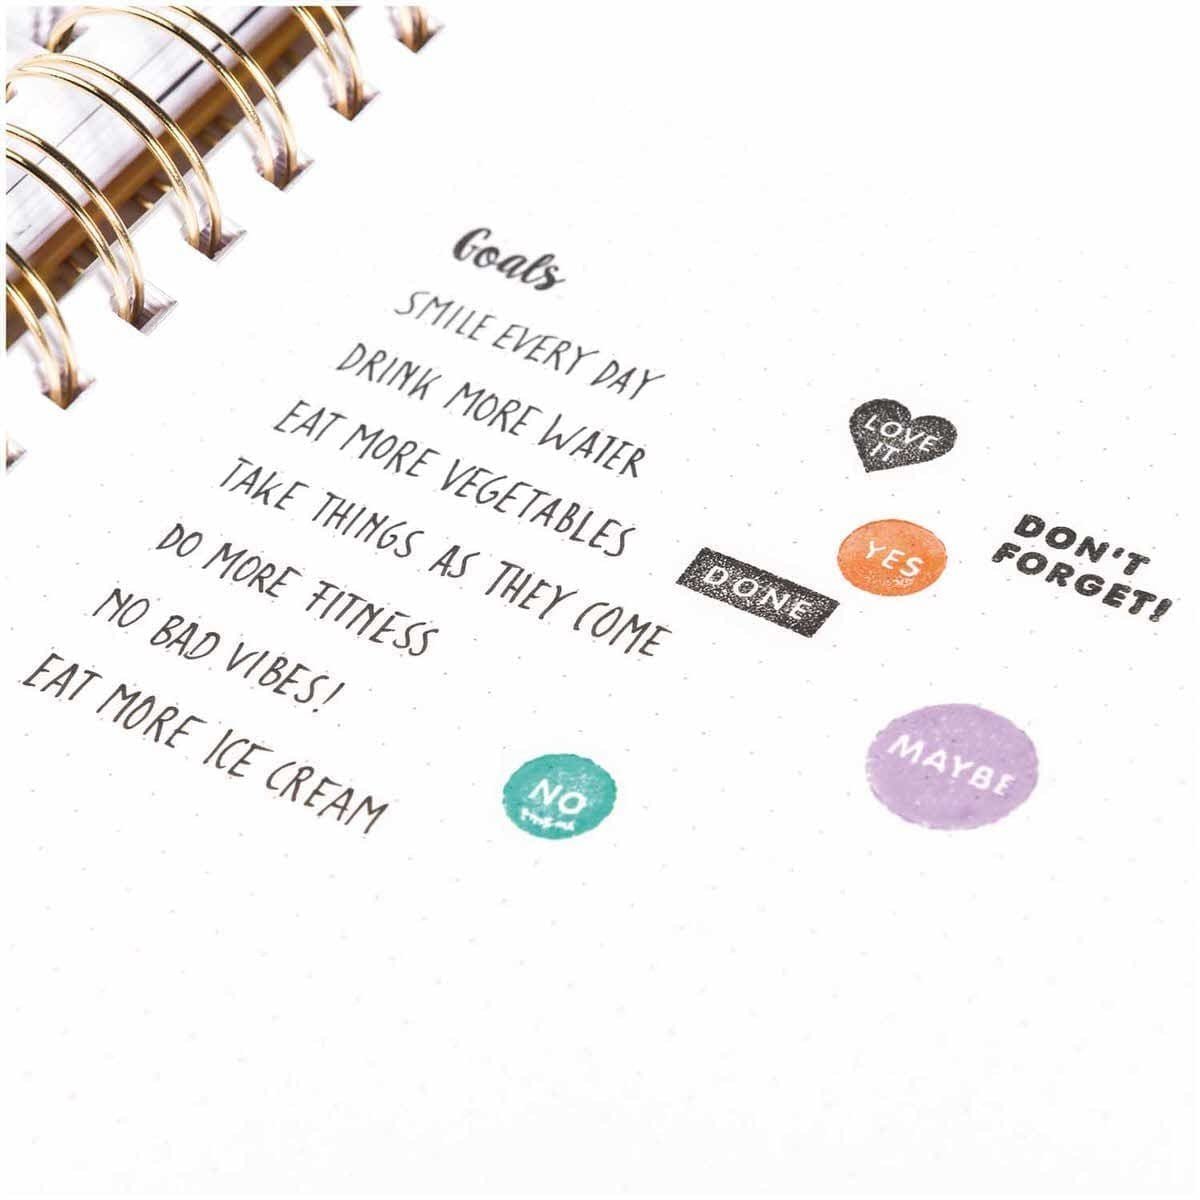 Goals
SMILE EVERY DAY
DRINK MORE WATER
EAT MORE VEGETABLES
TAKE THINGS AS THEY COME
DO MORE FITNESS
NO BAD VIBES!
EAT MORE ICE CREAM
LOVE
IT
YES
DON'T
FORGET!
DONE
MAYBE
NO